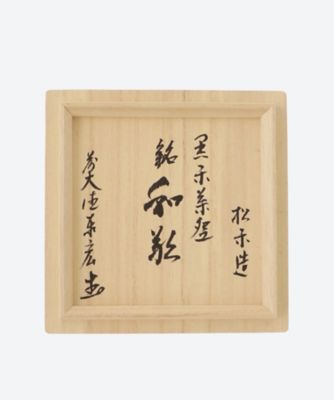 松楽造
黒楽茶碗
銘 和
前大徳 宏 書